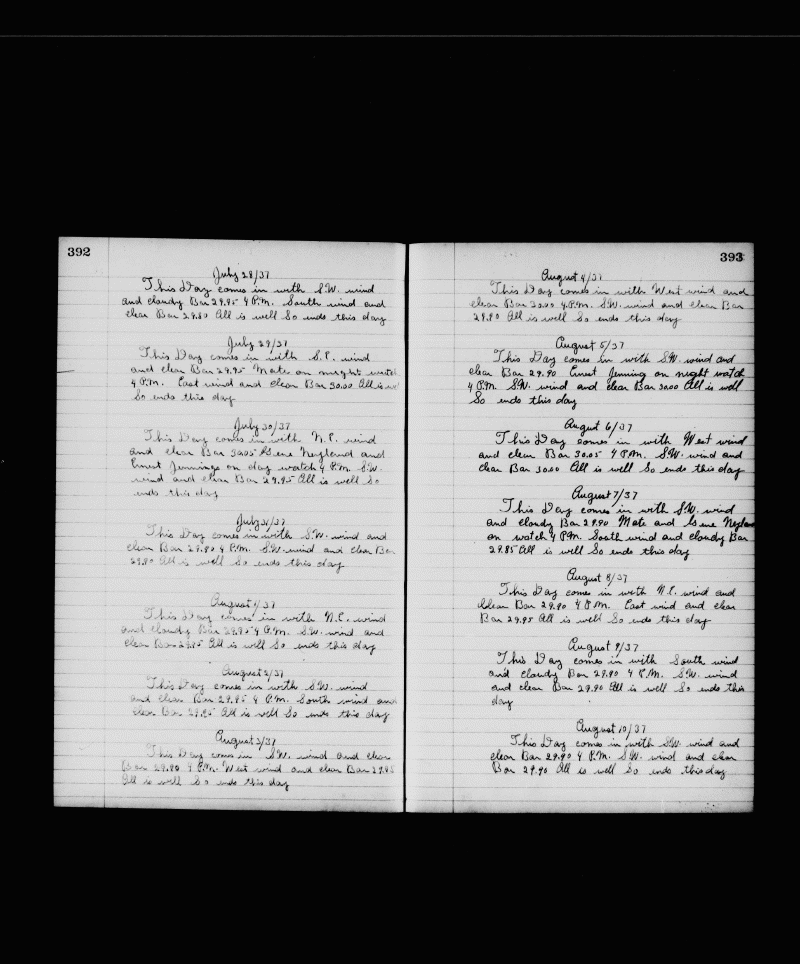 392
July 28/37
This Day comes in with S.W. wind
and cloudy Bar 29.95 4 P.M. South wind and
clear Bar 29.80 All is well So ends this day
July 29/37
This Day comes in with S.E. wind
and clear Bar 29.95 Mate on night watch
4 P.M. East wind and clear Bar 30.00 All is
So ends this day
July 30/37
This Day comes in with N.E. wind
and clear Bar 30.05 Gene Neylend and
Ernest Jennings on day watch 4 P.M. S.W.
wind and clear Bar 29.95 All is well So
ends this day
July 31/37
This Day comes in with S.W. wind and
clear Bar 29.90 4 P.M. S.W. wind and clear Bar
29.80 All is well So ends this day
August 1/37
This Day comes in with N.E. wind
and cloudy Bar 29.95 4 P.M. S.W. wind and
clear Bar 29.95 All is well So ends this day
August 2/37
This Day comes in with S.W. wind
and clear Bar 29.95 4 P.M. South wind and
clear Bar 29.95 All is well So ends this day
August 3/37
This Day comes in S.W. wind and clear
Bar 29.90 4 P.M. West wind and clear Bar 29.95
All is well So ends this day
393
August 4/37
This Day comes in with West wind and
clear Bar 30.00 4 P.M. S.W. wind and clear Bar
29.90 All is well So ends this day
August 5/37
This Day comes in with S.W. wind and
clear Bar 29.90 Ernest Jenning on night watch
4 P.M. S.W. wind and clear Bar 30.00 All is well
So ends this day
August 6/37
This Day comes in with West wind
and clear Bar 30.05 4 P.M. S.W. wind and
clear Bar 30.00 All is well So ends this day
August 7/37
This Day comes in with S.W. wind
and cloudy Bar 29.90 Mate and Gene
on watch 4 P.M. South wind and cloudy Bar
29.85 All is well So ends this day
August 8/37
This Day comes in with N.E. wind and
clear Bar 29.90 4 P.M. East wind and clear
Bar 29.95 All is well So ends this day
August 9/37
This Day comes in with South wind
and cloudy Bar 29.90 4 P.M. S.W. wind
and clear Bar 29.90 All is well So ends this
day
August 10/37
This Day comes in with S.W. wind and
clear Bar 29.90 4 P.M. S.W. wind and clear
Bar 29.90 All is well So ends this day